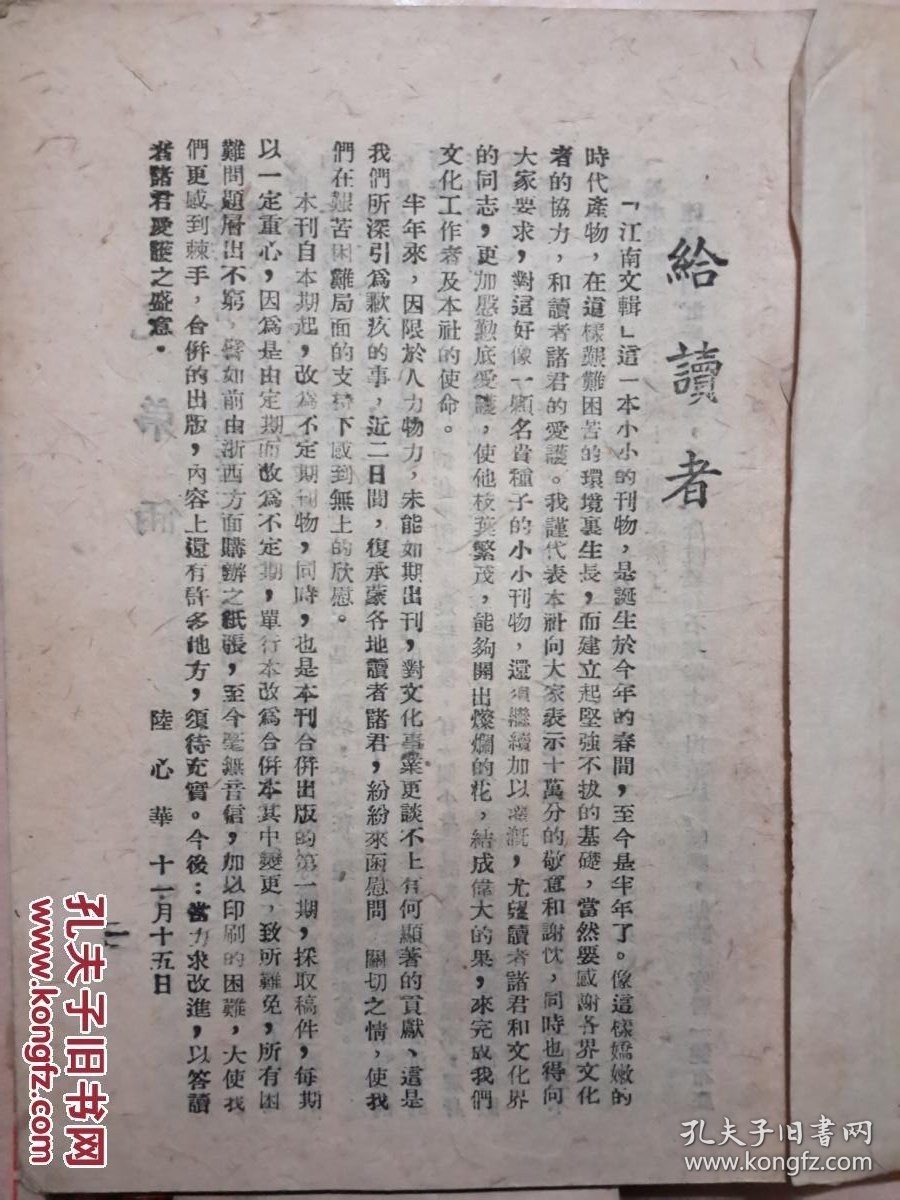 給讀者
「江南文輯」這一本小小的刊物，是誕生於今年的春間，至今是半年了。像這樣嬌嫩的
時代產物，在這樣艱難困苦的環境裏生長，而建立起堅強不拔的基礎，當然要感謝各界文化
者的協力，和讀者諸君的愛護。我謹代表本社向大家表示十萬分的敬意和謝忱，同時也得向
大家要求，對這好像一顆名貴種子的小小刊物，還須繼續加以灌溉，尤望讀者諸君和文化界
的同志，更加慇勤底愛護，使他枝葉繁茂，能夠開出燦爛的花，結成偉大的果，來完成我們
文化工作者及本社的使命。
半年來，因限於人力物力，未能如期出刊，對文化事業更談不上有何顯著的貢獻、這是
我們所深引爲歉疚的事，近二日間，復承蒙各地讀者諸君，紛紛來函慰問　關切之情，使我
們在艱苦困難局面的支撐下感到無上的欣慰。
本刊自本期起，改爲不定期刊物，同時，也是本刊合併出版的第一期，採取稿件，每期
以一定重心，因爲是由定期而改爲不定期，單行本改爲合併本其中變更，致所難免，所有困
難問題層出不窮，譬如前由浙西方面購辦之紙張，至今毫無音信，加以印刷的困難，大使我
們更感到棘手，合併的出版，內容上還有許多地方，須待充實。今後：當力求改進，以答讀
者諸君愛護之盛意．
陸心華　十一月十五日
孔夫子旧书网
www.kongfz.com
孔夫子旧书网
www.kongfz.com